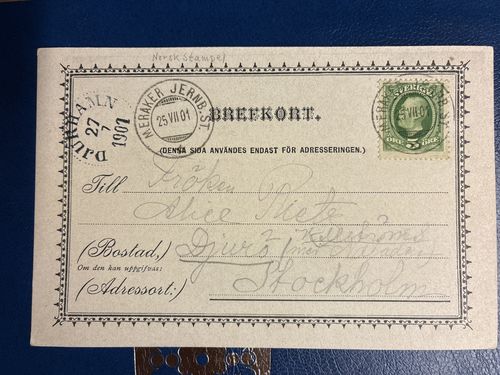 Norsk Stampel
DJURHAMN
27
7
1901
MERAKER JERNB.ST.
25 VII 01
SVERIGE
25 VII 01
ÖRE 5 ÖRE
BREFKORT.
(DENNA SIDA ANVÄNDES ENDAST FÖR ADRESSERINGEN.)
Till Fröken
Alice
(Bostad,) Djurö
Om den kan uppgifvas:
(Adressort:) Stockholm